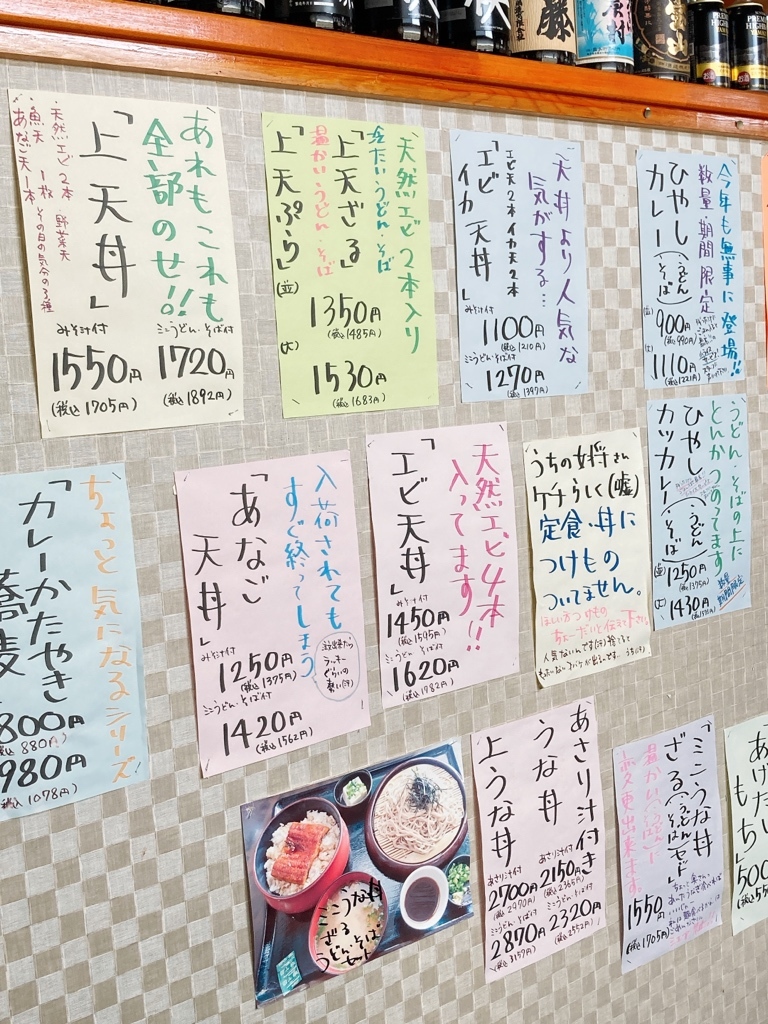 あれもこれも
全部のせ!!
「上天丼」
天然エビ2本 野菜天
魚天 1枚 その日の気分の3種
あなご天1本
みそ汁付
1550円
(税込 1705円)
ミニうどん・そば付
1720円
(税込 1892円)
天然エビ2本入り
冷たいうどん・そば
「上天ざる」
温かいうどん・そば
「上天ぷら」
(並)
1350円
(税込 1485円)
(大)
1530円
(税込 1683円)
天丼より人気な
気がする…
エビ天2本イカ天2本
「エビ
イカ天丼」
みそ汁付
1100円
(税込 1210円)
ミニうどん・そば付
1270円
(税込 1397円)
今年も無事に登場!!
数量・期間限定
ひやし
カレー(うどん そば)
(並)
900円
(税込 990円)
(大)
1110円
(税込 1221円)
ちょっと気になるシリーズ
「カレーかたやき
蕎麦
800円
税込 880円)
980円
税込 1078円)
入荷されても
すぐ終ってしまう
「あなご
天丼」
みそ汁付
1250円
(税込 1375円)
ミニうどん・そば付
1420円
(税込 1562円)
天然エビ4本
入ってます!!
「エビ天丼」
みそ汁付
1450円
(税込 1595円)
ミニうどん・そば
1620円
(税込 1782円)
うちの女将さん
ケチらしく(嘘)
定食・丼に
つけもの
ついてません。
ほしい方つけもの
ちょーだいと伝えて下さい
人気ないんです(汗)捨てると
うどん・そばの上に
とんかつのってます
ひやし
カツカレー(うどん そば)
(並)
1250円
(税込 1375円)
(大)
1430円
数量
期間限定
ミニうな丼
ざる
うどん・そば
セット
あさり汁付き
うな丼
上うな丼
あさり汁付
2150円
(税込 2365円)
ミニうどん・そば付
2320円
(税込 2552円)
あさり汁付
2700円
(税込 2970円)
ミニうどん・そば付
2870円
(税込 3157円)
「ミニうな丼
ざる(うどん そば)セット」
1550円
(税込 1705円)
あげたい
もち」
500
PREMIUM
HIGHBALL
お酒